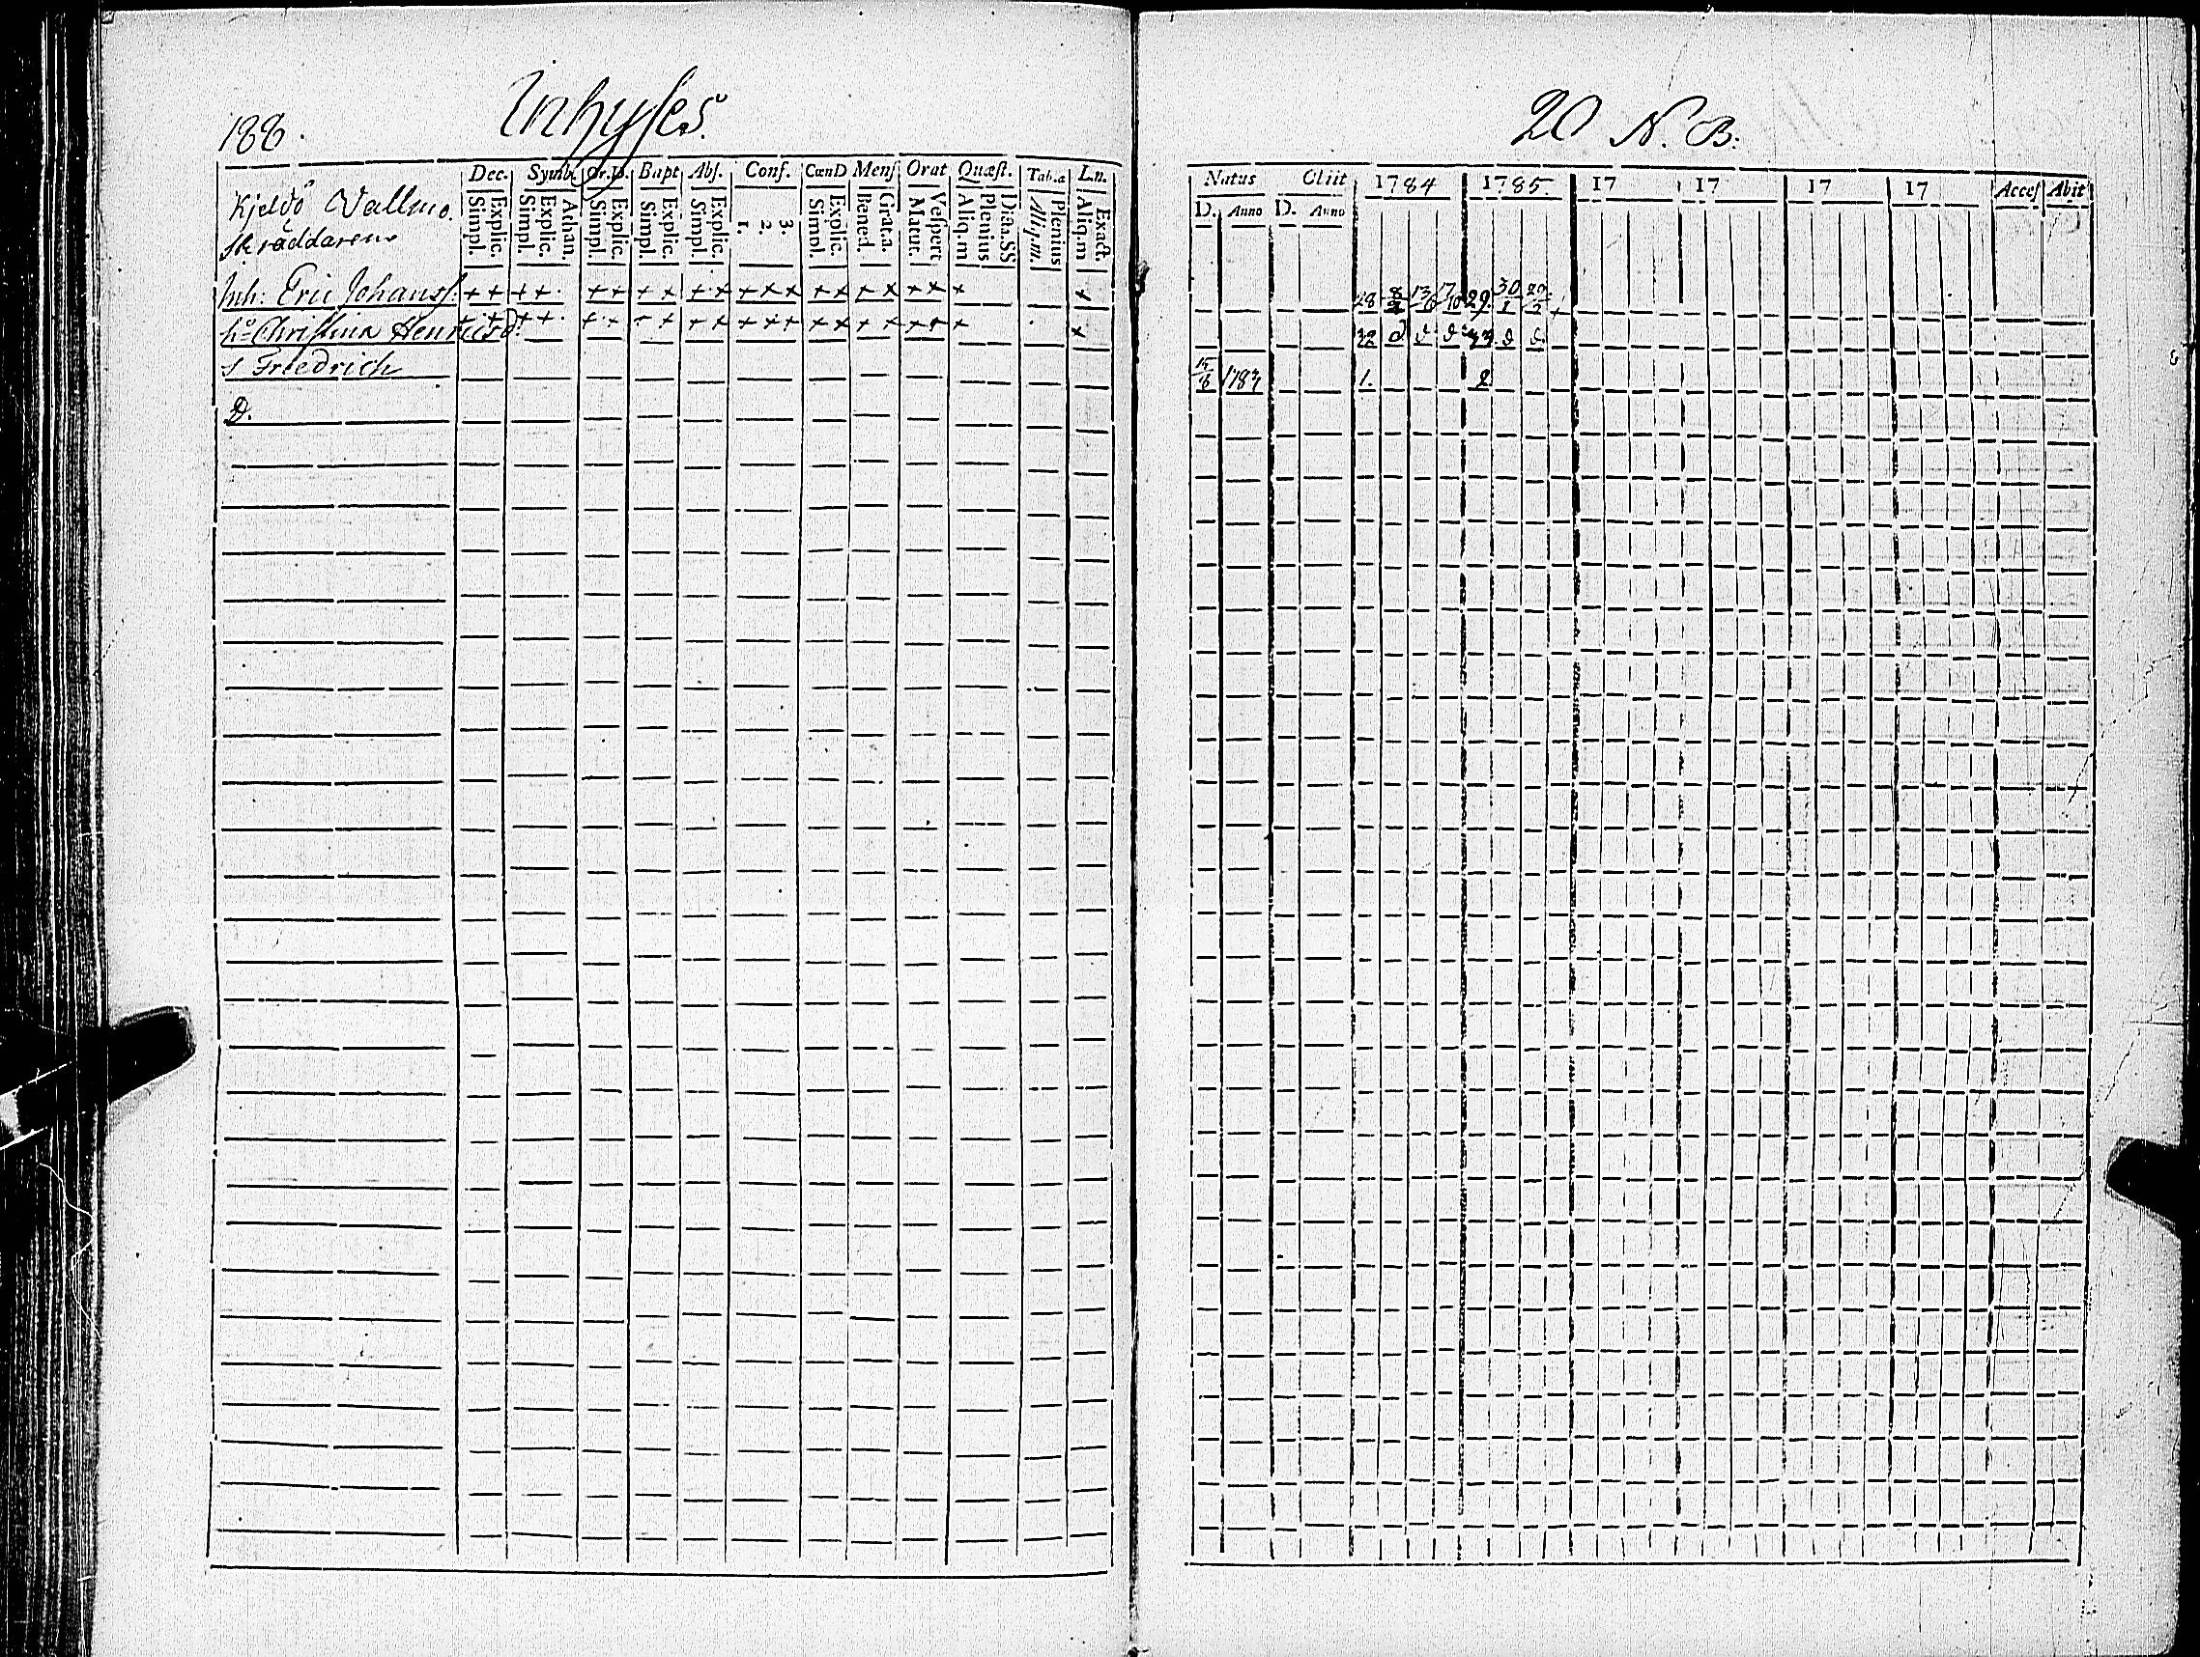 188. Inhyses.
Dec. Symb. Or.D. Bapt Abs. Conf. CœnD Mens Orat Quæst. Tab.a L.n.
Simpl. Explic. Simpl. Explic. Athan. Simpl. Explic. Simpl. Explic. Simpl. Explic. 1. 2. 3. Simpl. Explic. Bened. Grat.a. Matut. Vespert Aliq.m Plenius Dicta.SS. Aliq.m. Plenius Aliq.m Exact.
Kjeldö Vallmo.
Skräddaren
Inh: Eric Johanss: + + + + + + + + + + + + + + + + + + + + +
h:o Christina Henricsd: + + + + + + + + + + + + + + + + + + + +
s Friedrich
D.
20 N. B.
Natus Obiit 1784 1785. 17 17 17 17 Acces Abit
D. Anno D. Anno
28 8/2 13/6 17/10 29 30/1 20/3 +
32 d d d 33 d d
15/8 1784 1. 2